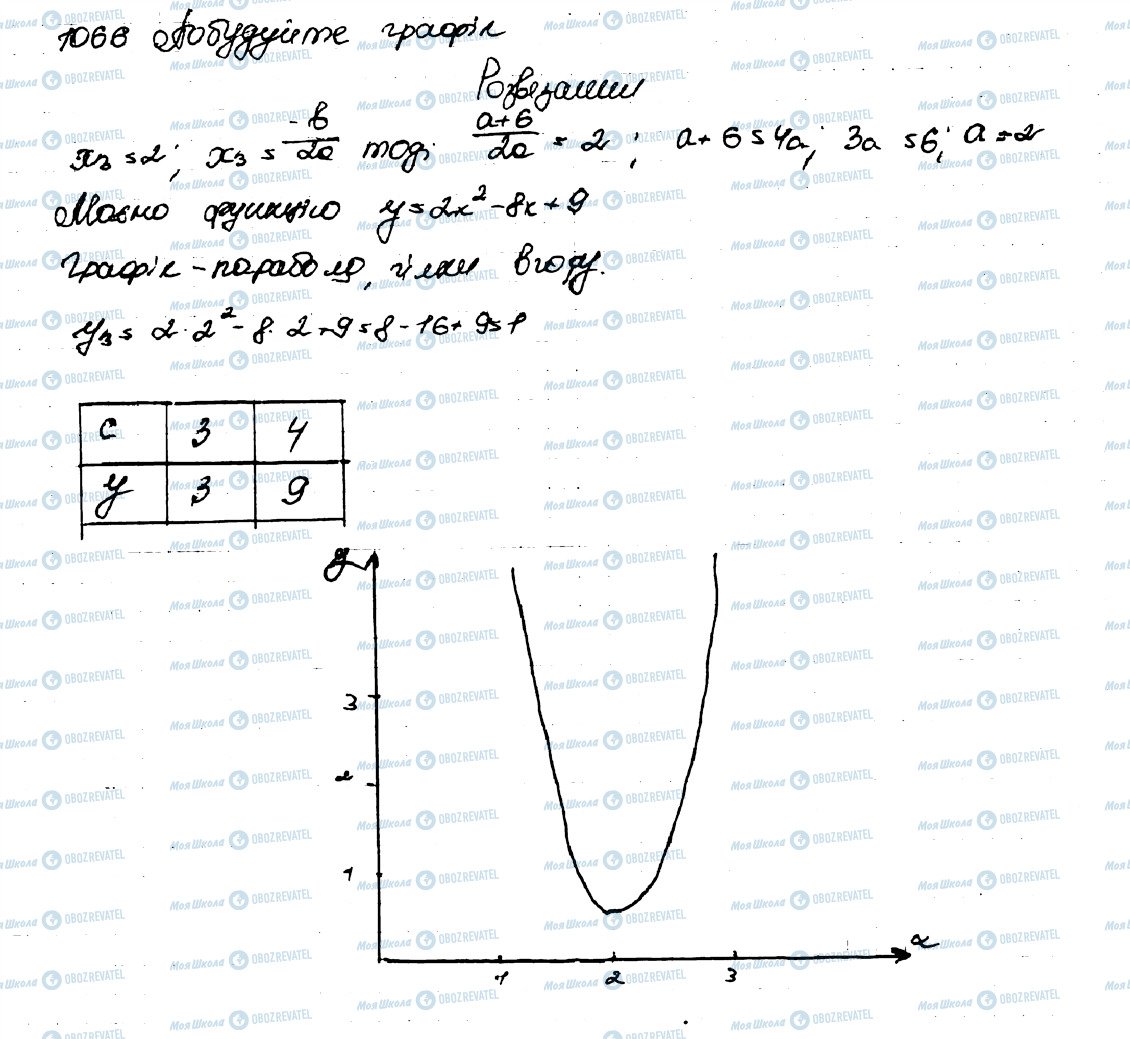 1066 Побудуйте графік
Розв'язання
x₃ = 2; x₃ = -b/2a тоді (a+6)/2a = 2; a+6=4a; 3a=6; a=2
Маємо функцію y=2x²-8x+9
Графік - парабола, гілки вгору.
y₃ = 2·2²-8·2+9=8-16+9=1
c 3 4
y 3 9
y
3
2
1
1 2 3
x